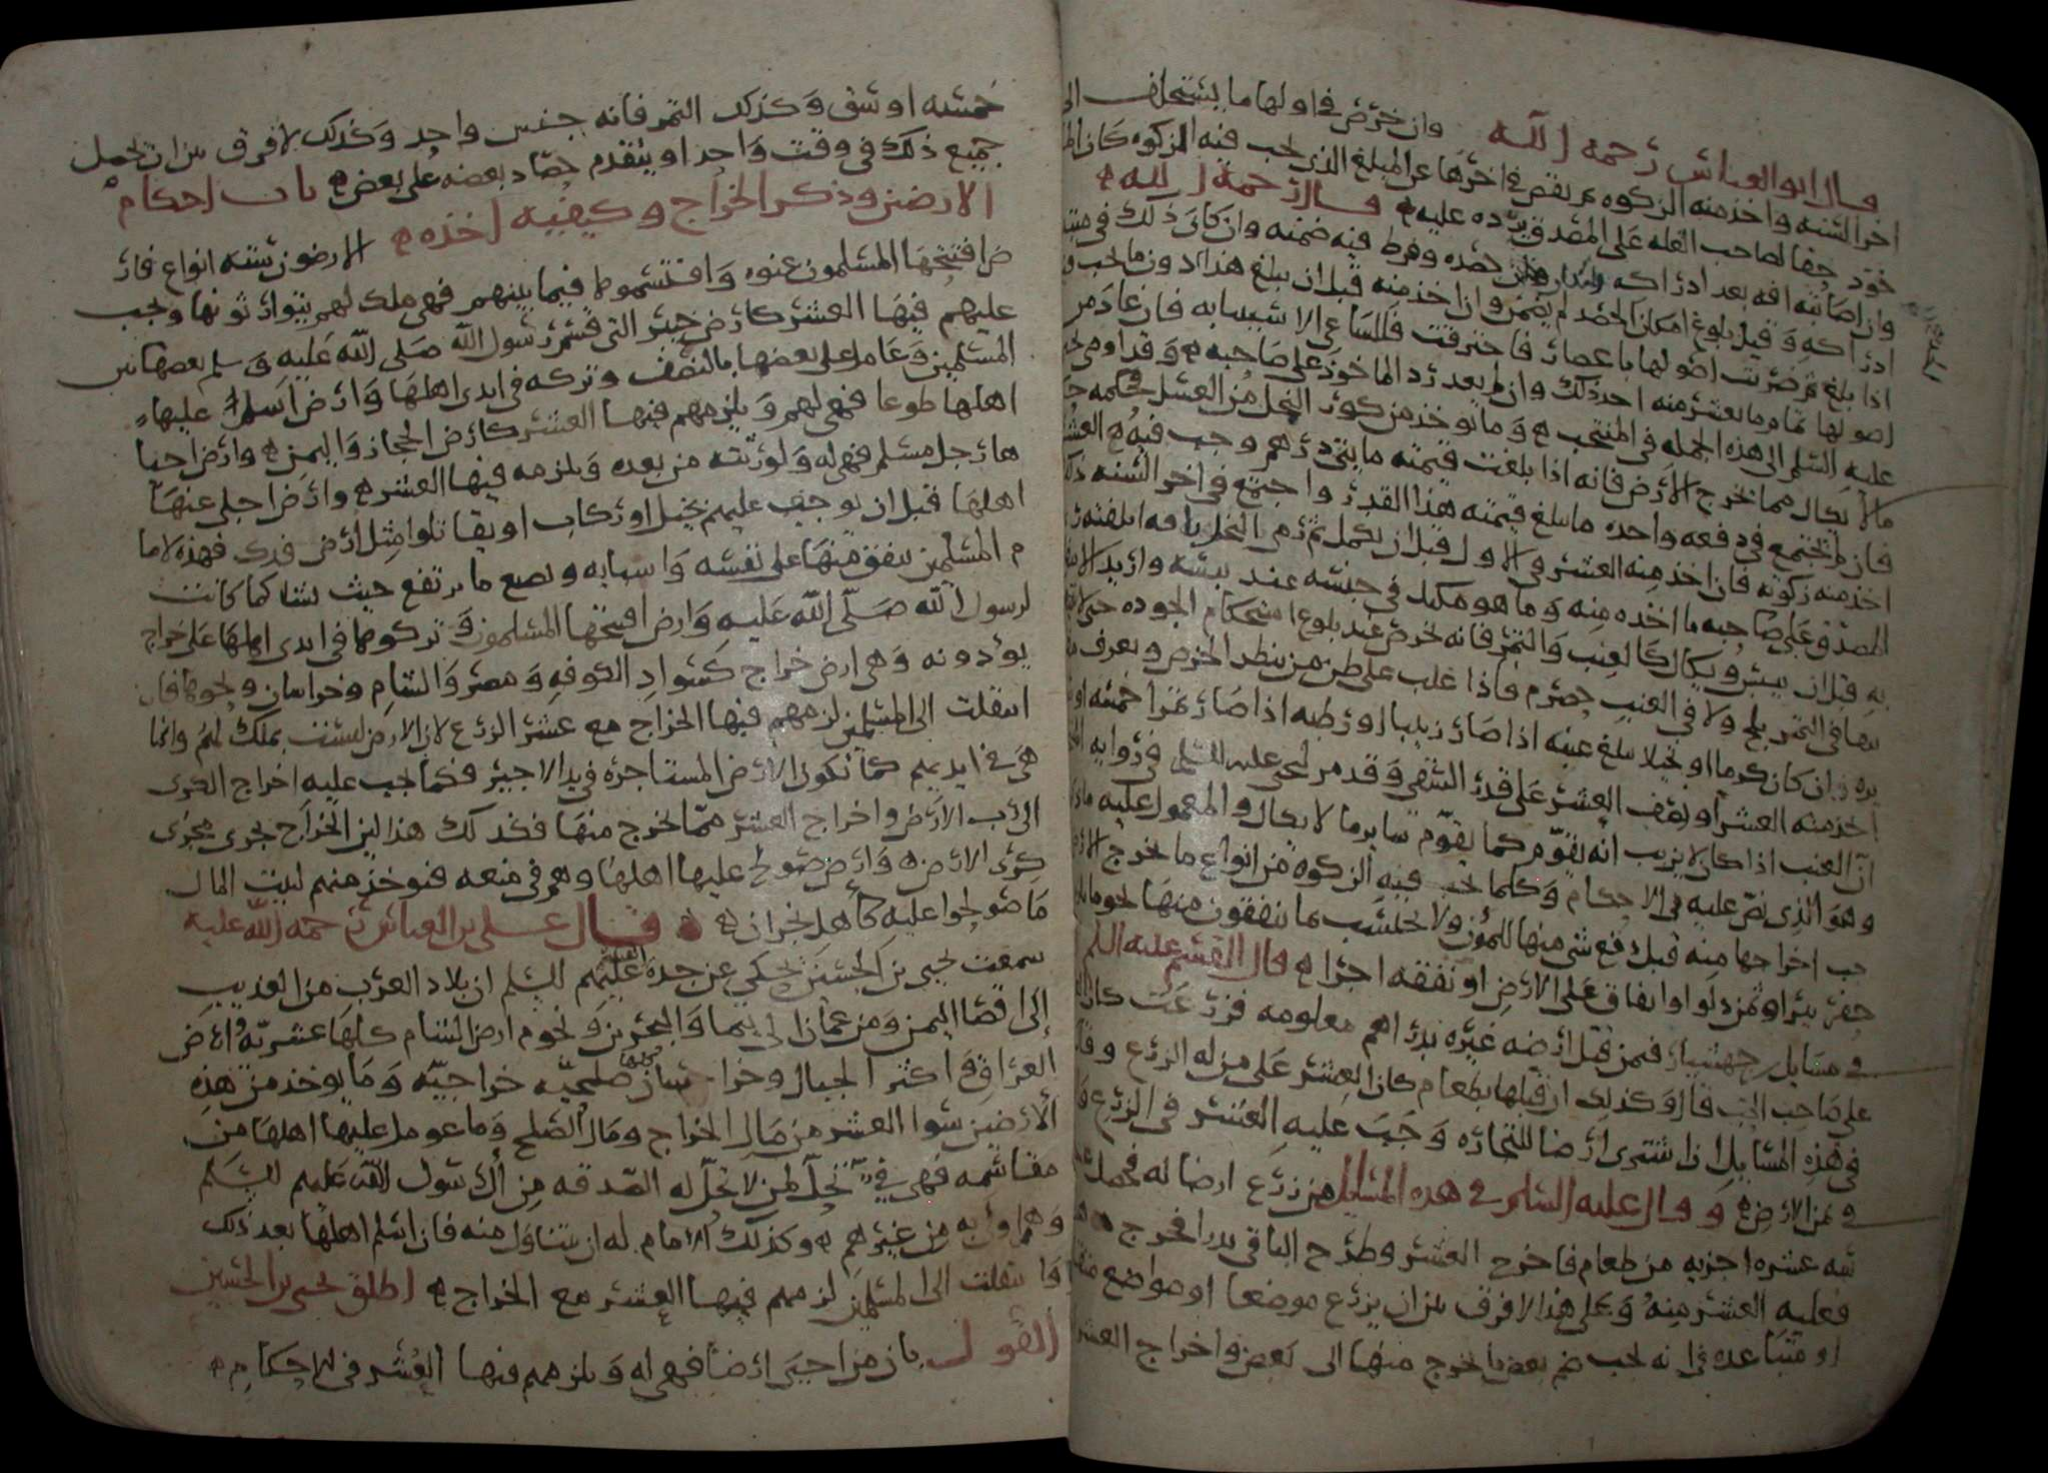 قال ابو العباس رحمه الله وان خرص في اولها ما يستخلف الى
اخر السنه واخذ منه الزكوه ثم نقص في اخرها عن المبلغ الذي يجب فيه الزكوه كان
حقا لصاحب الغله على المصدق يرده عليه قال رحمه الله
وان اصابته افه بعد ادراكه حصده وفرط فيه ضمنه وان كان ذلك في
ادراكه وقبل بلوغ امكان الحصد لم يضمن وان اخذ منه قبل ان يبلغ هذا دون ما يجب
اذا بلغ ثم ضربت اصولها باعصار فاحترقت فللساعي الاشيا به فان عاد من
اصولها تمام ما يعشر منه احد ذلك وان لم يعد رد الماخوذ على صاحبه وقد اومى
عليه السلم الى هذه الجمله في المنتخب وما يوخذ من كور النحل من العسل فحكمه
مالا يكال مما تخرج الارض فانه اذا بلغت قيمته مايتي درهم وجب فيه العشر
فان لم يجتمع في دفعه واحده ما يبلغ قيمته هذا القدر واجتمع في اخر السنه
اخذ منه زكوته فان اخذ منه العشر في الاول قبل ان يكمل ثم رمى النحل بافه اتلفته
المصدق على صاحبه ما اخذه منه وما هو مكيل في جنسه عند يبسه واريد
به قبل ان ييبس ويكال كالعنب والتمر فانه يخرص عند بلوغ استحكام الجوده حتى
بها في التمر بلح ولا في العنب حصرم فاذا غلب على ظن من ينظر الخرص ويعرف
وان كان كرما او نخيلا بلغ عنبه اذا صار زبيبا او رطبه اذا صار تمرا خمسه
اخذ منه العشر او نصف العشر على قدر السقي وقد مر ليحيى عليه السلم في روايه
ان العنب اذا كان لا يزبب انه يقوم كما يقوم ساير ما لا يكال والمعمول عليه
وهو الذي نص عليه في الاحكام وكلما يجب فيه الزكوه من انواع ما يخرج
يجب اخراجها منه قبل دفع شي منها للمؤن ولا يحتسب بما ينفقون منها نحو
حفر بئر او ثمن دلو او انفاق على الارض او نفقه اجراء قال القسم عليه السلم
في مسايل جهشيار فيمن قبل ارضه غيره بدراهم معلومه فزرعت كان
على صاحب الحب قال وكذلك ان قبلها بطعام كان العشر على من له الزرع
في هذه المسايل اذا اشترى ارضا للتجاره وجب عليه العشر في الزرع
في ثمن الارض وقال عليه السلم في هذه المسايل من زرع ارضا له فحصل
سه عشره اجربه من طعام فاخرج العشر وطرح الباقي
فعليه العشر منه وعلى هذا لا فرق بين ان يزرع موضعا او مواضع
او متباعده في انه يجب ضم بعض ما يخرج منها الى بعض واخراج العشر
خمسه اوسق وكذلك التمر فانه جنس واحد وكذلك لا فرق بين ان يحمل
جميع ذلك في وقت واحد او يتقدم حصاد بعضه على بعض باب احكام
الارضين وذكر الخراج وكيفيه اخذه الارضون سته انواع فار
ض افتتحها المسلمون عنوه واقتسموها فيما بينهم فهي ملك لهم يتوارثونها ويجب
عليهم فيها العشر كارض خيبر التي قسمها رسول الله صلى الله عليه وسلم بعضها بين
المسلمين وعامل على بعضها بالنصف وتركه في ايدي اهلها وارض اسلم عليها
اهلها طوعا فهي لهم ويلزمهم فيها العشر كارض الحجاز واليمن وارض احيا
ها رجل مسلم فهي له ولورثته من بعده ويلزمه فيها العشر وارض اجلى عنها
اهلها قبل ان يوجف عليهم بخيل او ركاب او يقاتلوا مثل ارض فدك فهذه لاما
م المسلمين ينفق منها على نفسه واسبابه ويضع ما يرتفع حيث شا كما كانت
لرسول الله صلى الله عليه وارض افتتحها المسلمون وتركوها في ايدي اهلها على خراج
يؤدونه وهي ارض خراج كسواد الكوفه ومصر والشام وخراسان ونحوها فان
انتقلت الى المسلمين لزمهم فيها الخراج مع عشر الزرع لان الارض ليست بملك لهم وانما
هي في ايديهم كما تكون الارض المستاجره في يد الاجير فكما يجب عليه اخراج الكرى
الى رب الارض واخراج العشر مما يخرج منها فكذلك هذا لان الخراج يجري مجرى
كرى الارض وارض صولح عليها اهلها وهم في منعه فيوخذ منهم لبيت المال
ما صولحوا عليه كاهل نجران قال علي بن العباس رحمه الله عليه
سمعت يحيى بن الحسين يحكي عن جده القسم عليهم السلم ان بلاد العرب من العذيب
إلى اقصا اليمن ومن عمان الى ينما والبحرين ونخوم ارض الشام كلها عشريه وارض
العراق واكثر الجبال وخراسان كلها صلحيه خراجيه وما يوخذ من هذه
الارضين سوا العشر من مال الخراج ومال الصلح وما عومل عليها اهلها من
مقاسمه فهي في تحل لمن لا تحل له الصدقه من ال رسول الله عليهم السلم
وهم اولى به من غيرهم وكذلك الامام له ان يتناول منه فان اسلم اهلها بعد ذلك
وانتقلت الى المسلمين لزمهم فيها العشر مع الخراج اطلق يحيى بن الحسين
القول بان من احيى ارضا فهي له ويلزمهم فيها العشر في الاحكام